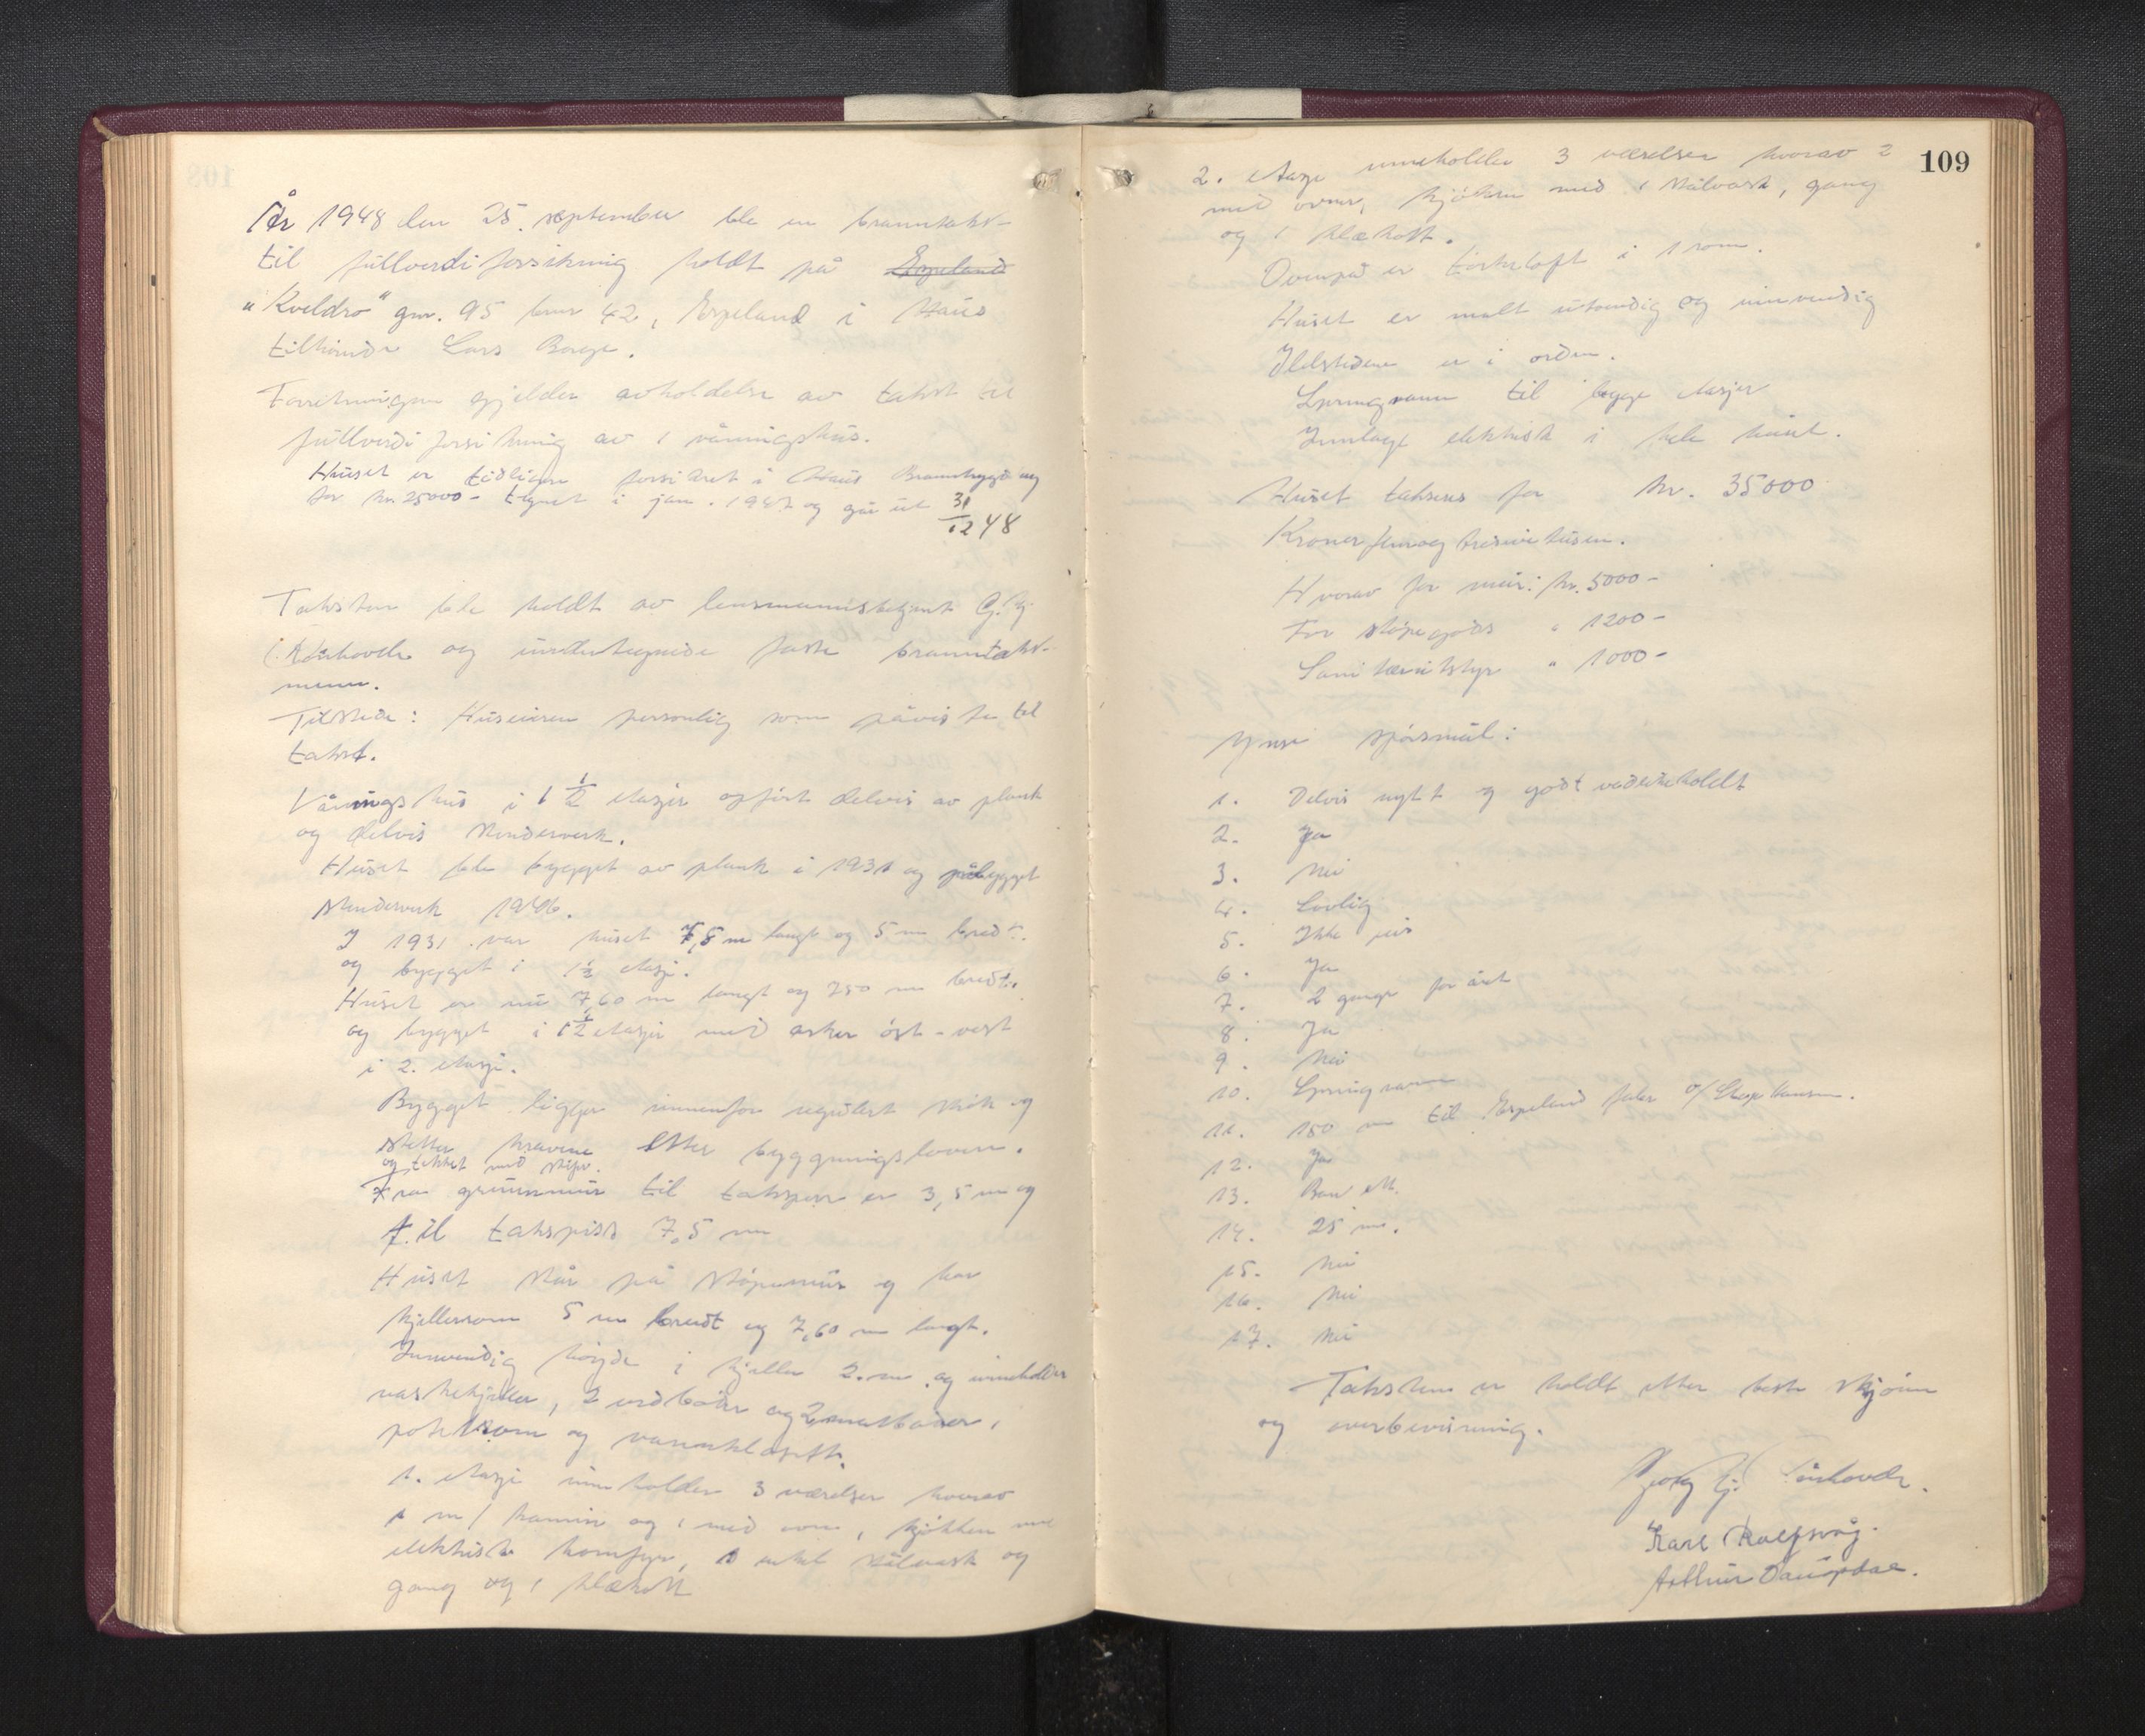 År 1948 den 25. september ble en branntakst
til fullverdiforsikring holdt på Espeland
"Kveldro" gnr. 95 bnr 42, Espeland i Haus
tilhørende Lars Borge.
Forretningen gjelder avholdelse av takst til
fullverdi forsikring av 1 våningshus.
Huset er tidligere forsikret i Haus Branntrygdelag
for kr. 25000- tegnet i jan. 1947 og går ut 31/12 48
Taksten ble holdt av lensmannsbetjent G. Gj.
og undertegnede faste branntakst-
menn.
Tilstede: Huseieren personlig som påviste til
takst.
Våningshus i 1 1/2 etasjer opført delvis av plank
og delvis stenderverk.
Huset ble bygget av plank i 1931 og påbygget
stenderverk 1946.
I 1931 var huset 7,5 m langt og 5 m bredt
og bygget i 1 1/2 etasje.
Huset er nu 7,60 m langt og 750 m bredt
og bygget i 1 1/2 etasjer med arker øst-vest
i 2. etasje.
Bygget ligger innenfor regulert strøk og
støtter kravene etter bygningsloven.
og tekket med skifer.
Fra grunnmur til takskjegg er 3,5 m og
til takspiss 7,5 m
Huset står på støpemur og har
kjellerrom 5 m bredt og 7,60 m langt.
Innvendig høyde i kjeller 2. m. og inneholder
vaskekjeller, 2 vedboder og 2 matboder,
potetrom og vannklosett.
1. etasje inneholder 3 værelser hvorav
1 m/ kamin og 1 med ovn, kjøkken med
elektrisk komfyr, 1 enkel stålvask og
gang og 1 klækott
109
2. etasje inneholder 3 værelser hvorav 2
med ovner, kjøkken med 1 stålvask, gang
og 1 klækott.
Ovenpå er tørkeloft i 1 rom.
Huset er malt utvendig og innvendig
Ildstedene er i orden.
Springvann til begge etasjer
Innlagt elektrisk i hele huset.
Huset takseres for kr. 35000
Kroner femogtredvetusen.
Hvorav for mur: kr. 5000-
For støpegods " 1200-
Sanitærutstyr " 1000-
Ymse spørsmål:
1. Delvis nytt og godt vedlikeholdt
2. Ja
3. Nei
4. Lovlig
5. Ikke peis
6. Ja
7. 2 ganger for året
8. Ja
9. Nei
10. Springvann
11. 150 m til Espeland
12. Ja
13.
14. 25 m.
15. Nei
16. Nei
17. Nei
Taksten er holdt etter beste skjønn
og overbevisning.
Georg Gj.
Karl Rolfsvåg.
Arthur Daugsdal.